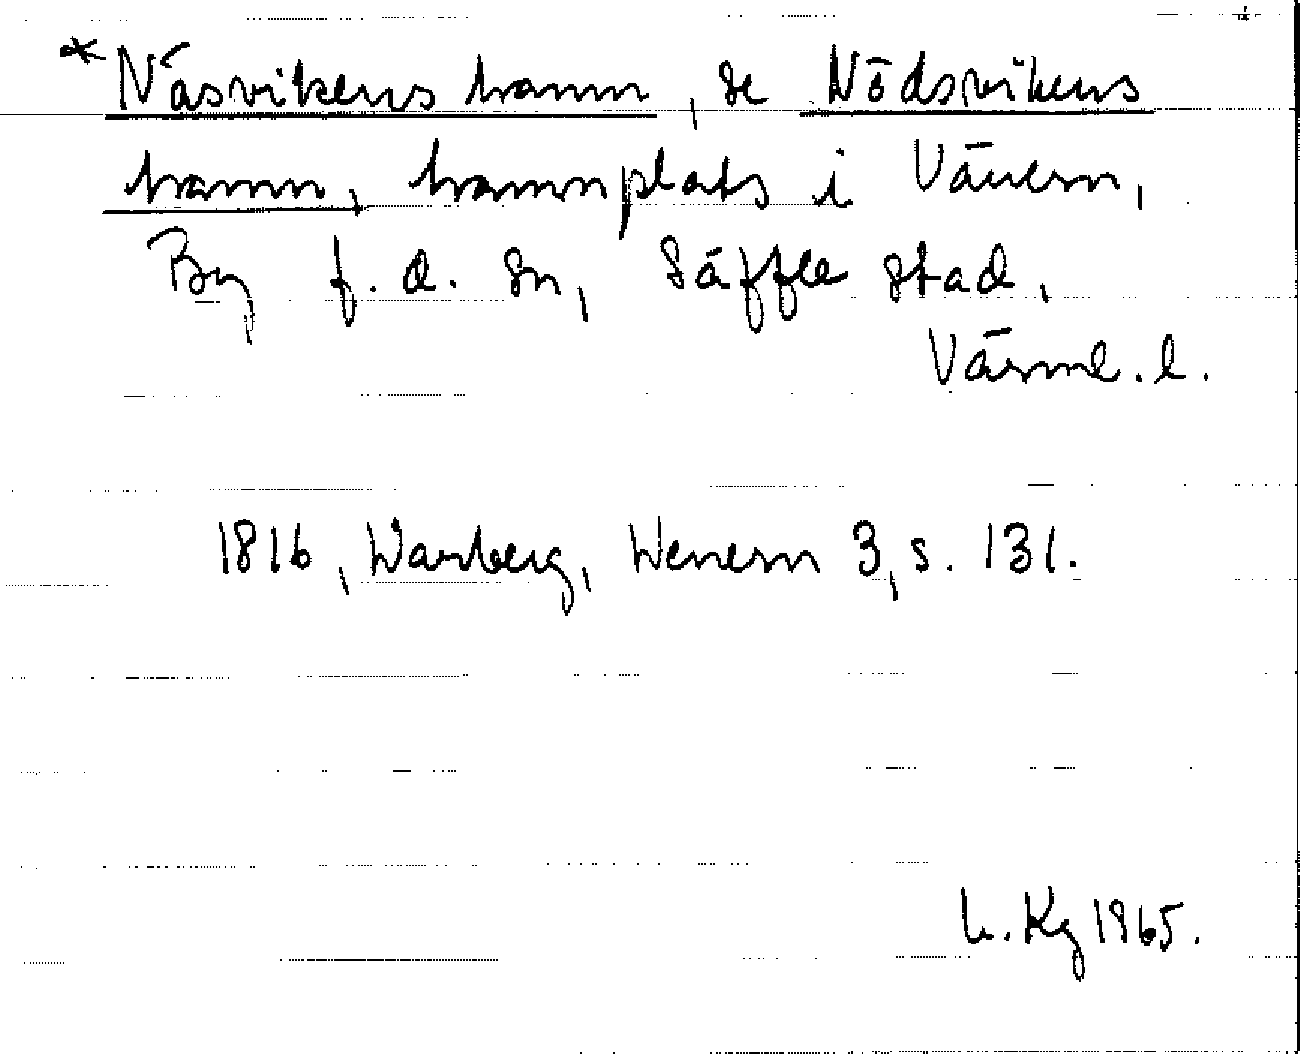 *Näsvikens hamn, se Nödsvikens
hamn, hamnplats i Vänern,
By f. d. sn, Säffle stad,
Värml. l.
1816, Warberg, Wenern 3, s. 131.
L. Kg 1965.